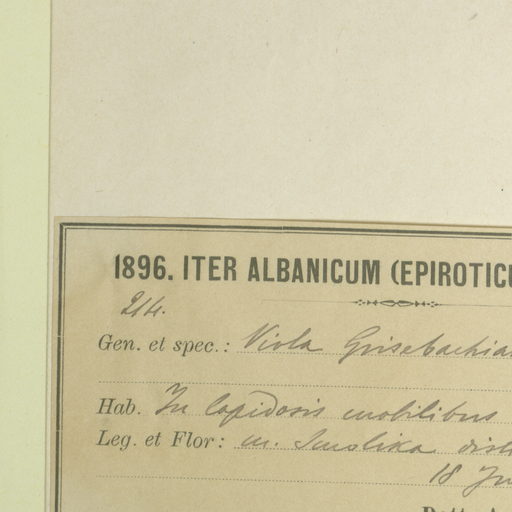 1896. ITER ALBANICUM (EPIROTICU
214.
Gen. et spec.: Viola Grisebachian
Hab. In lapidosis mobilibus
Leg. et Flor: m. Smolika dist
18 Ju